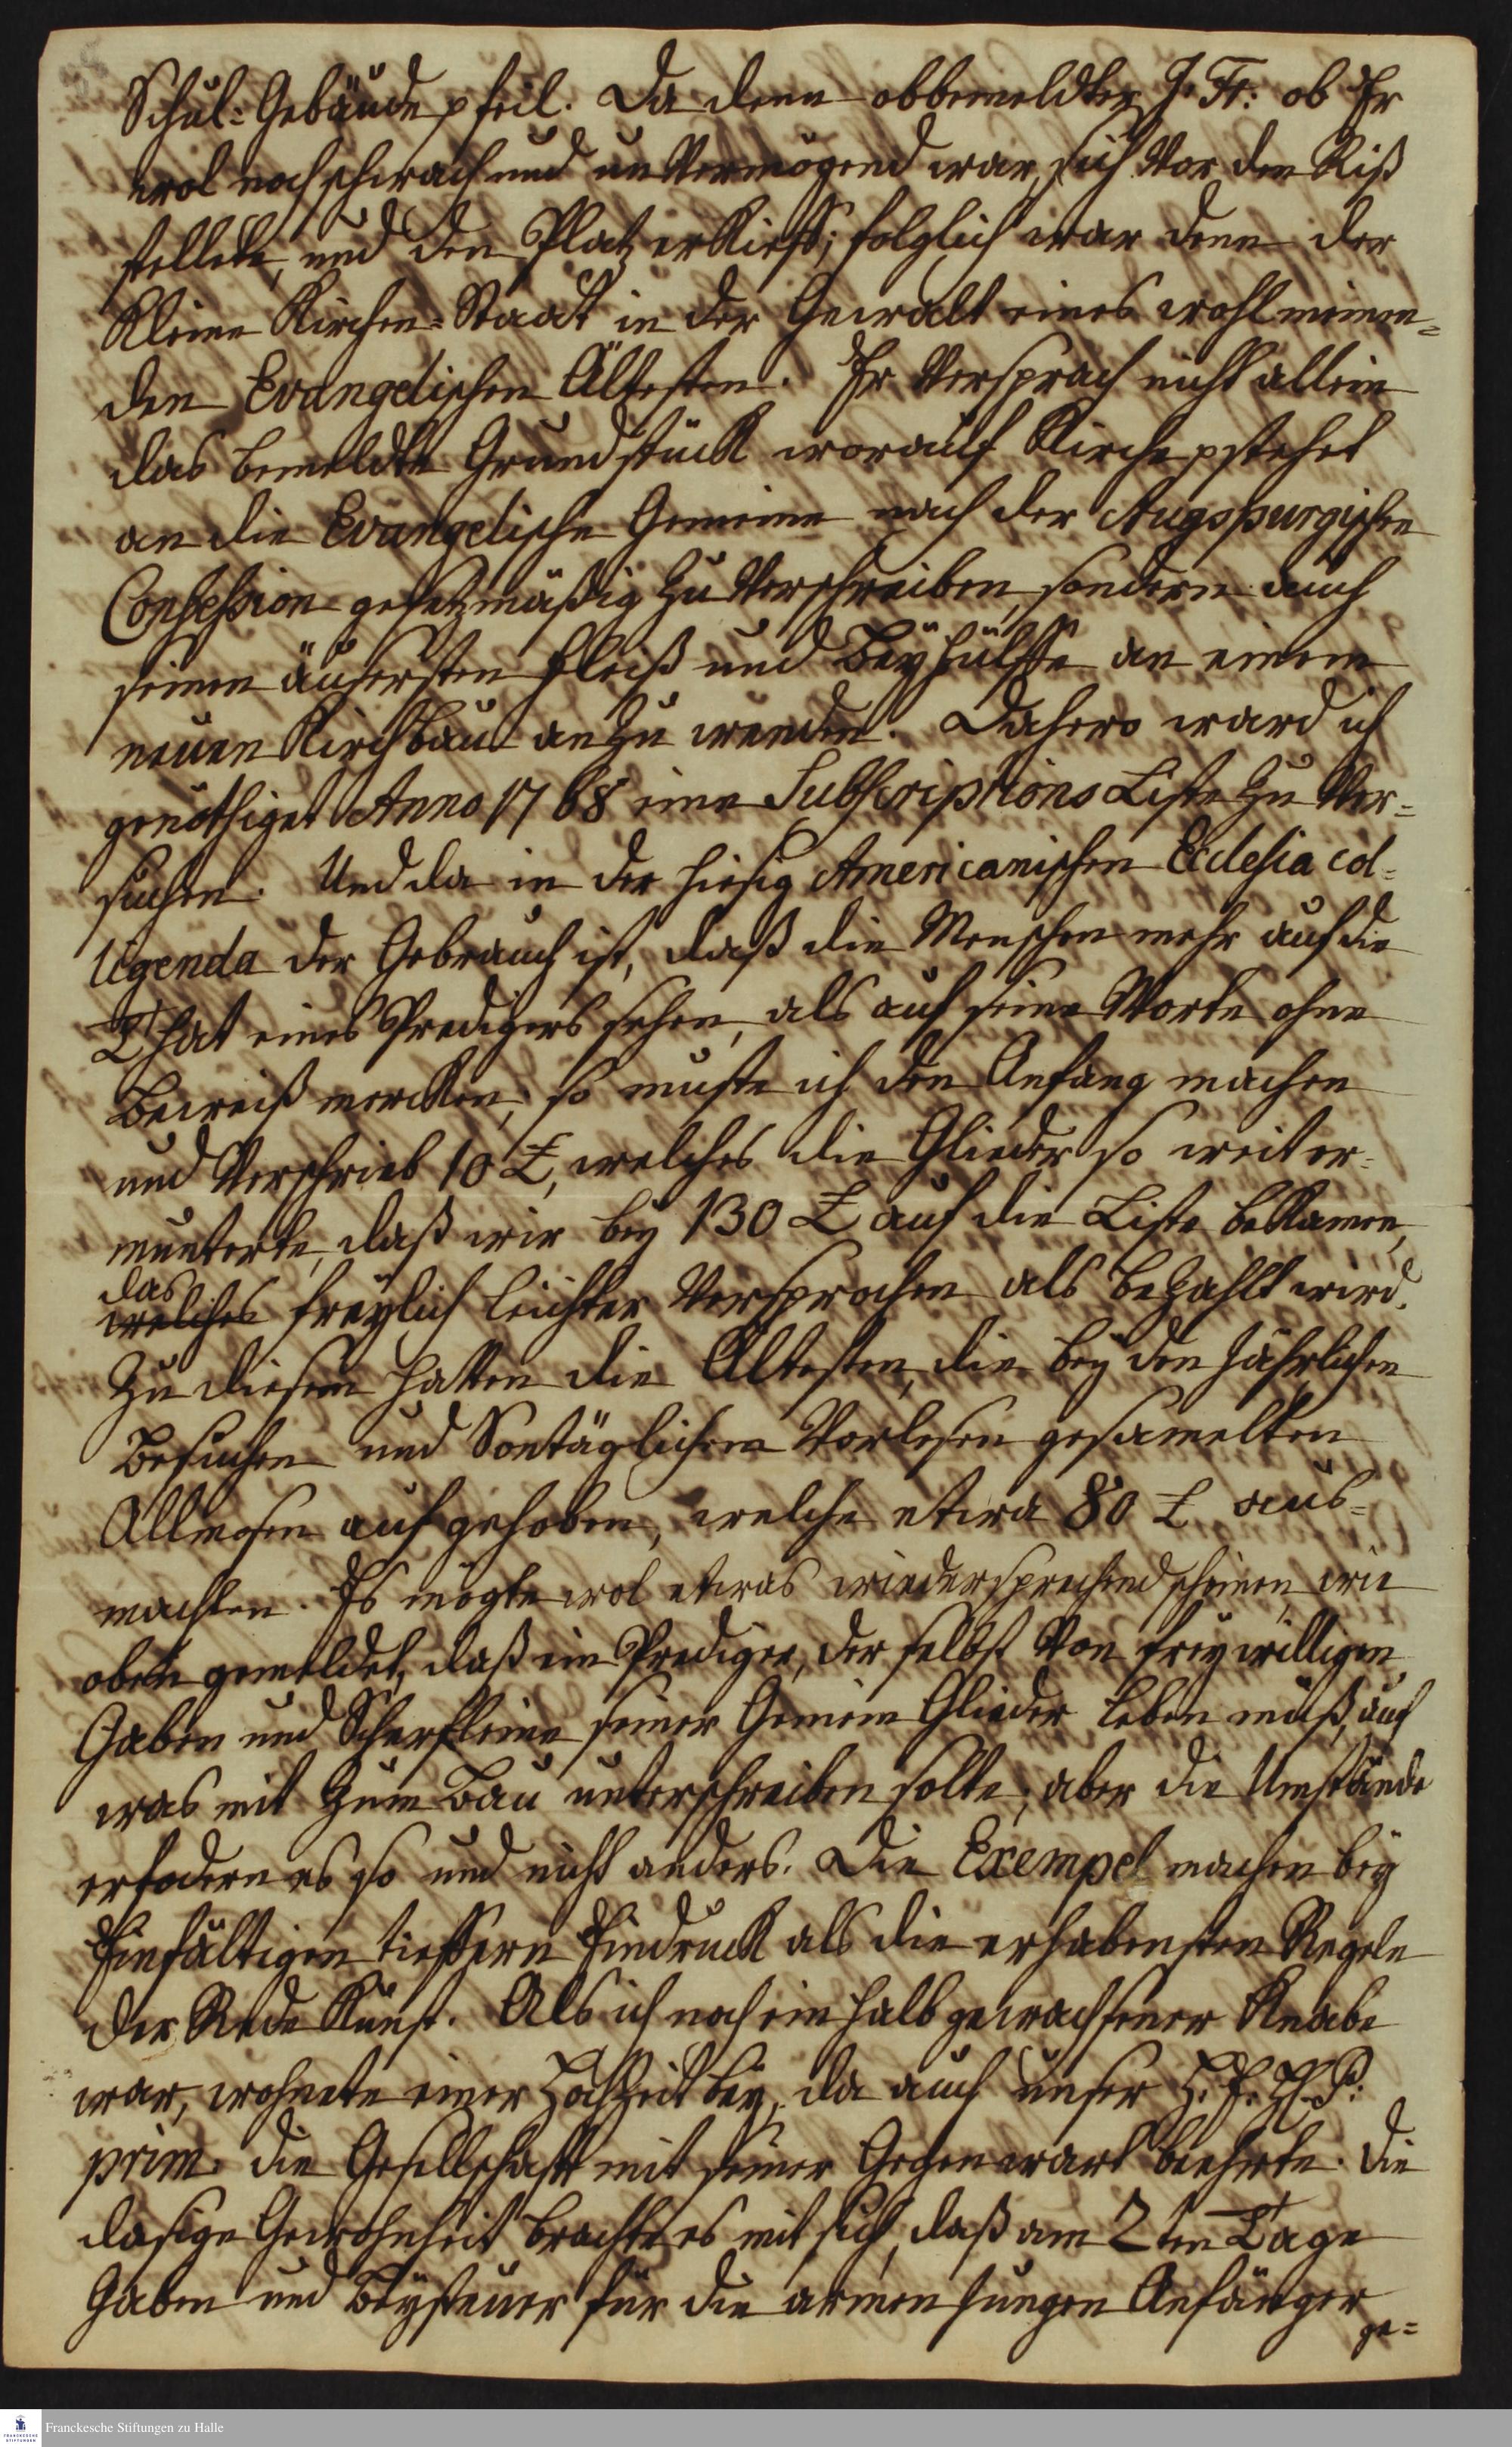 Schul-Gebäude p feil. Da denn obbemeldter J. Fr: ob Er
wol noch schwach und unvermögend war, sich vor den Riß
stellete, und den Platz erkieft; folglich war denn der
kleine Kirchen-Staat in der Gewalt eines wohlmeinen=
den Evangelischen Ältesten. Er versprach nicht allein
das bemeldte Grundstück worauf Kirche p stehet
an die Evangelische Gemeine nach der Augspurgischen
Confession gesetzmäßig zu verschreiben, sondern auch
seinen äusersten Fleiß und Beyhülffe an einem
neuen Kirchbau anzuwenden. Dahero ward ich
genöthiget Anno 1768 eine Subscriptions Liste zu ver=
suchen. Und da in der hiesig Americanischen Ecclesia col=
ligenda der Gebrauch ist, daß die Menschen mehr auf die
That eines Predigers sehen, als auf seine Worte ohne
Beweiß mercken; so muste ich den Anfang machen
und verschrieb 10 £, welches die Glieder so weit er=
munterte, daß wir bey 130 £ auf die Liste bekamen,
das
welches freylich leichter versprochen als bezahlt wird.
Zu diesem hatten die Ältesten, die bey den jährlichen
Besuchen und Sontäglichem Vorlesen gesamelten
Allmosen aufgehoben, welche etwa 80 £ aus=
machten. Es mögte wol etwas wiedersprechend scheinen, wie
oben gemeldet, daß ein Prediger, der selbst von freywilligen
Gaben und Scherfleins seiner Gemein Glieder leben muß, auch
was mit zum Bau unterschreiben solte; aber die Umstände
erfodern es so und nicht anders. Die Exempel machen bey
Einfältigen tieffern Eindruck als die erhabensten Regeln
der Rede Kunst. Als ich noch ein halb gewachsener Knabe
war, wohnete einer Hochzeit bey, da auch unser H. P.
prim. die Gesellschafft mit seiner Gegenwart beehrte. Die
dasige Gewohnheit brachte es mit sich, daß am 2ten Tage
Gaben und Beysteuer für die armen jungen Anfänger
ge=
Franckesche Stiftungen zu Halle